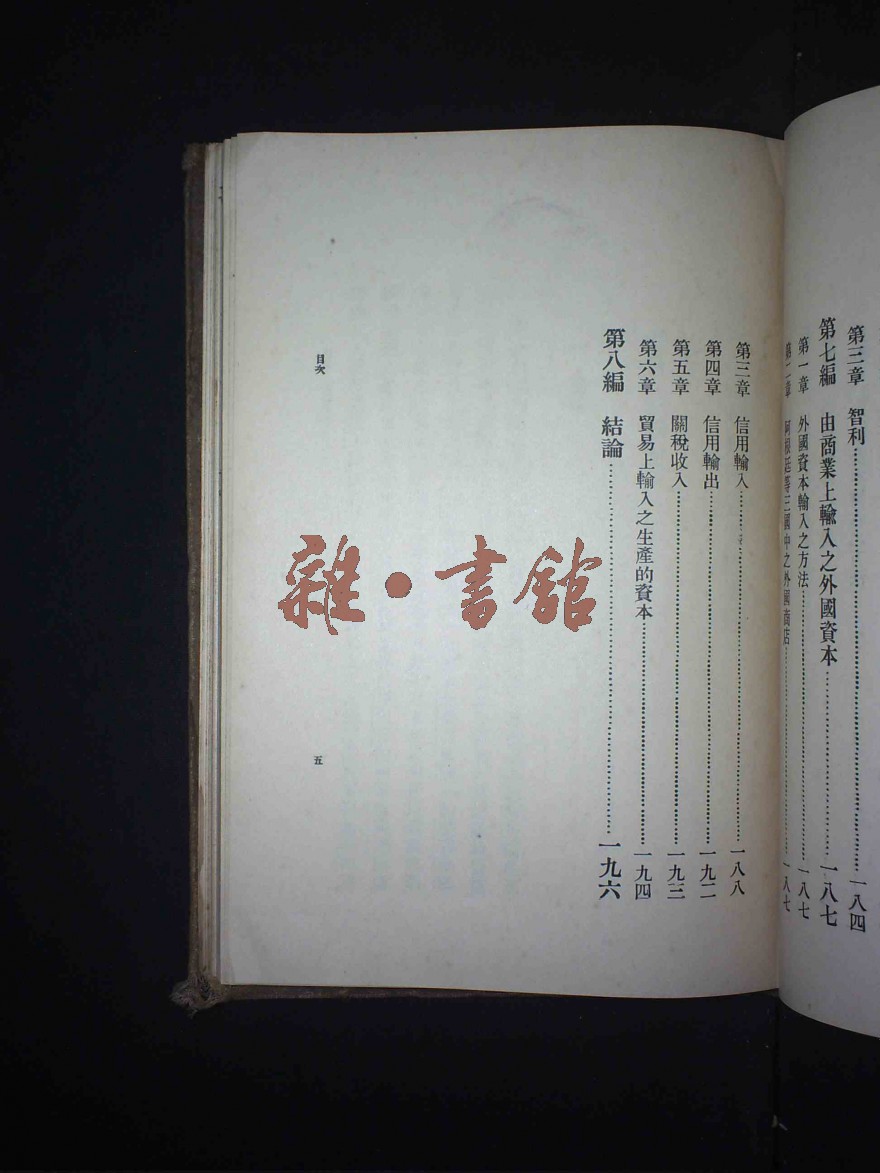 第三章　智利……一八四
第七編　由商業上輸入之外國資本……一八七
第一章　外國資本輸入之方法……一八七
第二章　阿根廷等三國中之外國商店……一八七
第三章　信用輸入……一八八
第四章　信用輸出……一九二
第五章　關稅收入……一九三
第六章　貿易上輸入之生產的資本……一九四
第八編　結論……一九六
目次
五
雜・書館